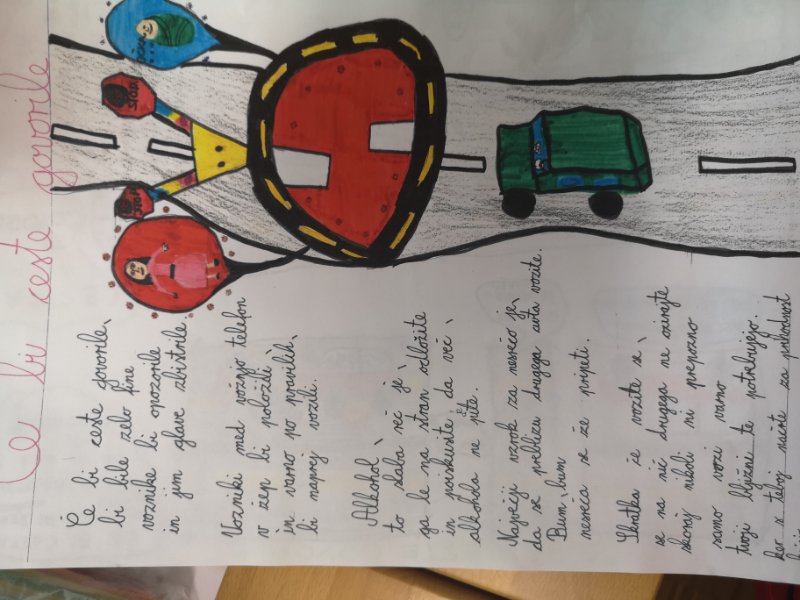 Če bi ceste govorile
Če bi ceste govorile,
bi bile zelo fine
voznike bi opozorile
in jim glave zbistrile.
Vozniki med vožnjo telefon
v žep bi položili
in varno po pravilih,
bi naprej vozili.
Alkohol,
to slaba reč je,
ga le na stran odložite
in poiskusite da več
alkohola ne pite.
Največji vzrok za nesrečo je,
da se preblizu drugega avta vozite.
Bum, bum
nesreča se že pripeti.
Skratka če vozite se,
se na nič drugega ne ozirajte
skoraj nikoli ni prepozno
samo vozi varno
tvoji bližnji te potrebujejo.
ker s teboj načrte za prihodnost
STOP
STOP